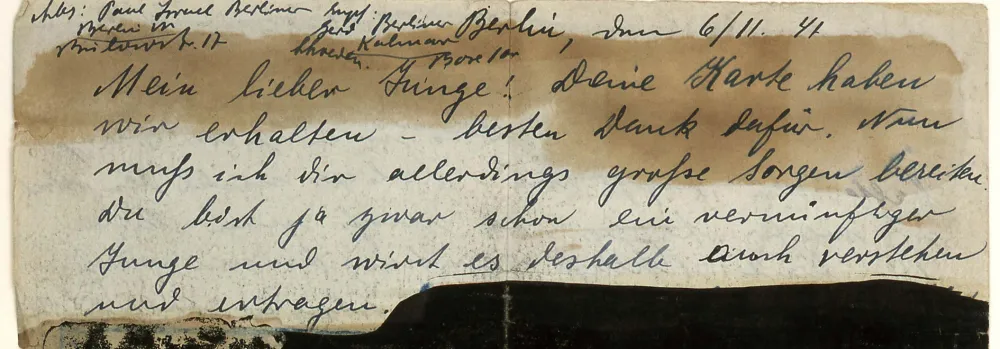 Abs: Paul Israel Berliner Empf: Gerd Berliner Berlin, den 6/11. 41
Berlin W Kalmar
Bülowstr. 17 Schweden. Box 102
Mein lieber Junge! Deine Karte haben
wir erhalten – besten Dank dafür. Nun
muß ich dir allerdings große Sorgen bereiten.
Du bist ja zwar schon ein vernünftiger
Junge und wirst es deshalb auch verstehen
und ertragen.